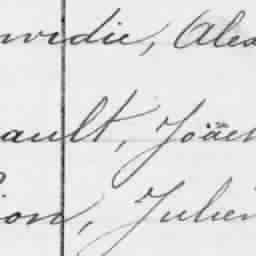 widie, Alex
ault, Joach
ion, Julien